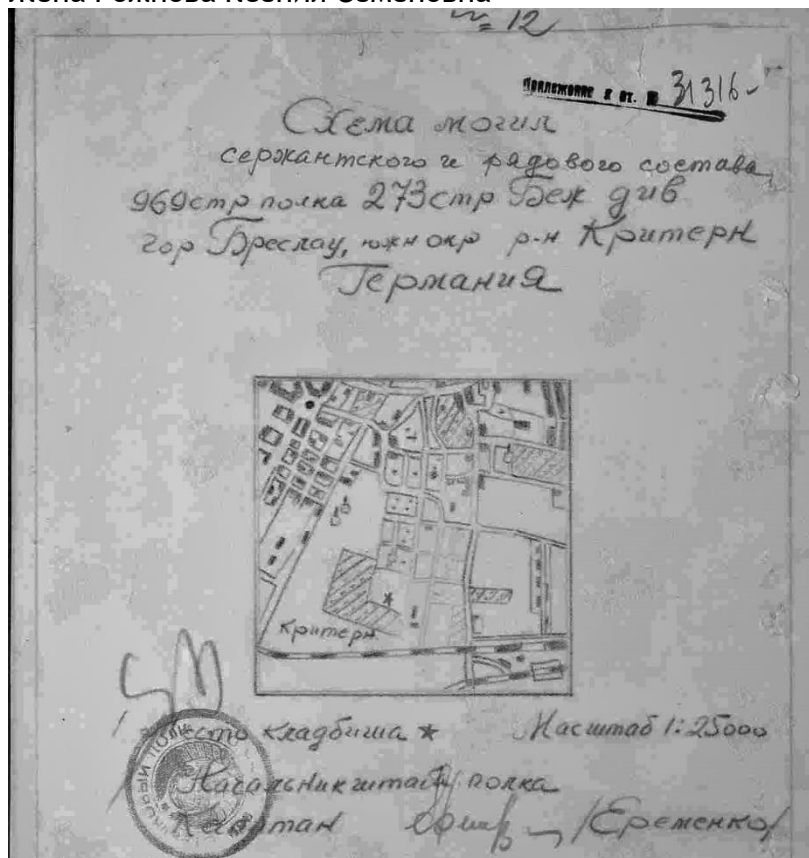 жена Рожнова Ксения Семеновна
№ 12
Приложение к вх. № 31316
Схема могил
сержантского и рядового состава
969 стр полка 273 стр Беж див
гор Бреслау, южн окр р-н Критерн
Германия
Критерн
Место кладбища ★ Масштаб 1:25000
Начальник штаба полка
Капитан /Еременко/